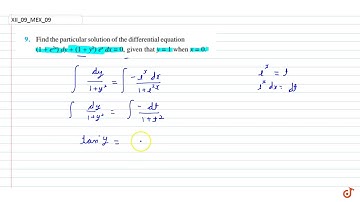 XII_09_MEX_09
9. Find the particular solution of the differential equation
(1 + e²ˣ) dy + (1 + y²) eˣ dx = 0, given that y = 1 when x = 0.
∫ dy/(1+y²) = ∫ -eˣ dx/(1+e²ˣ)
eˣ = t
eˣ dx = dt
∫ dy/(1+y²) = ∫ -dt/(1+t²)
tan⁻¹y =